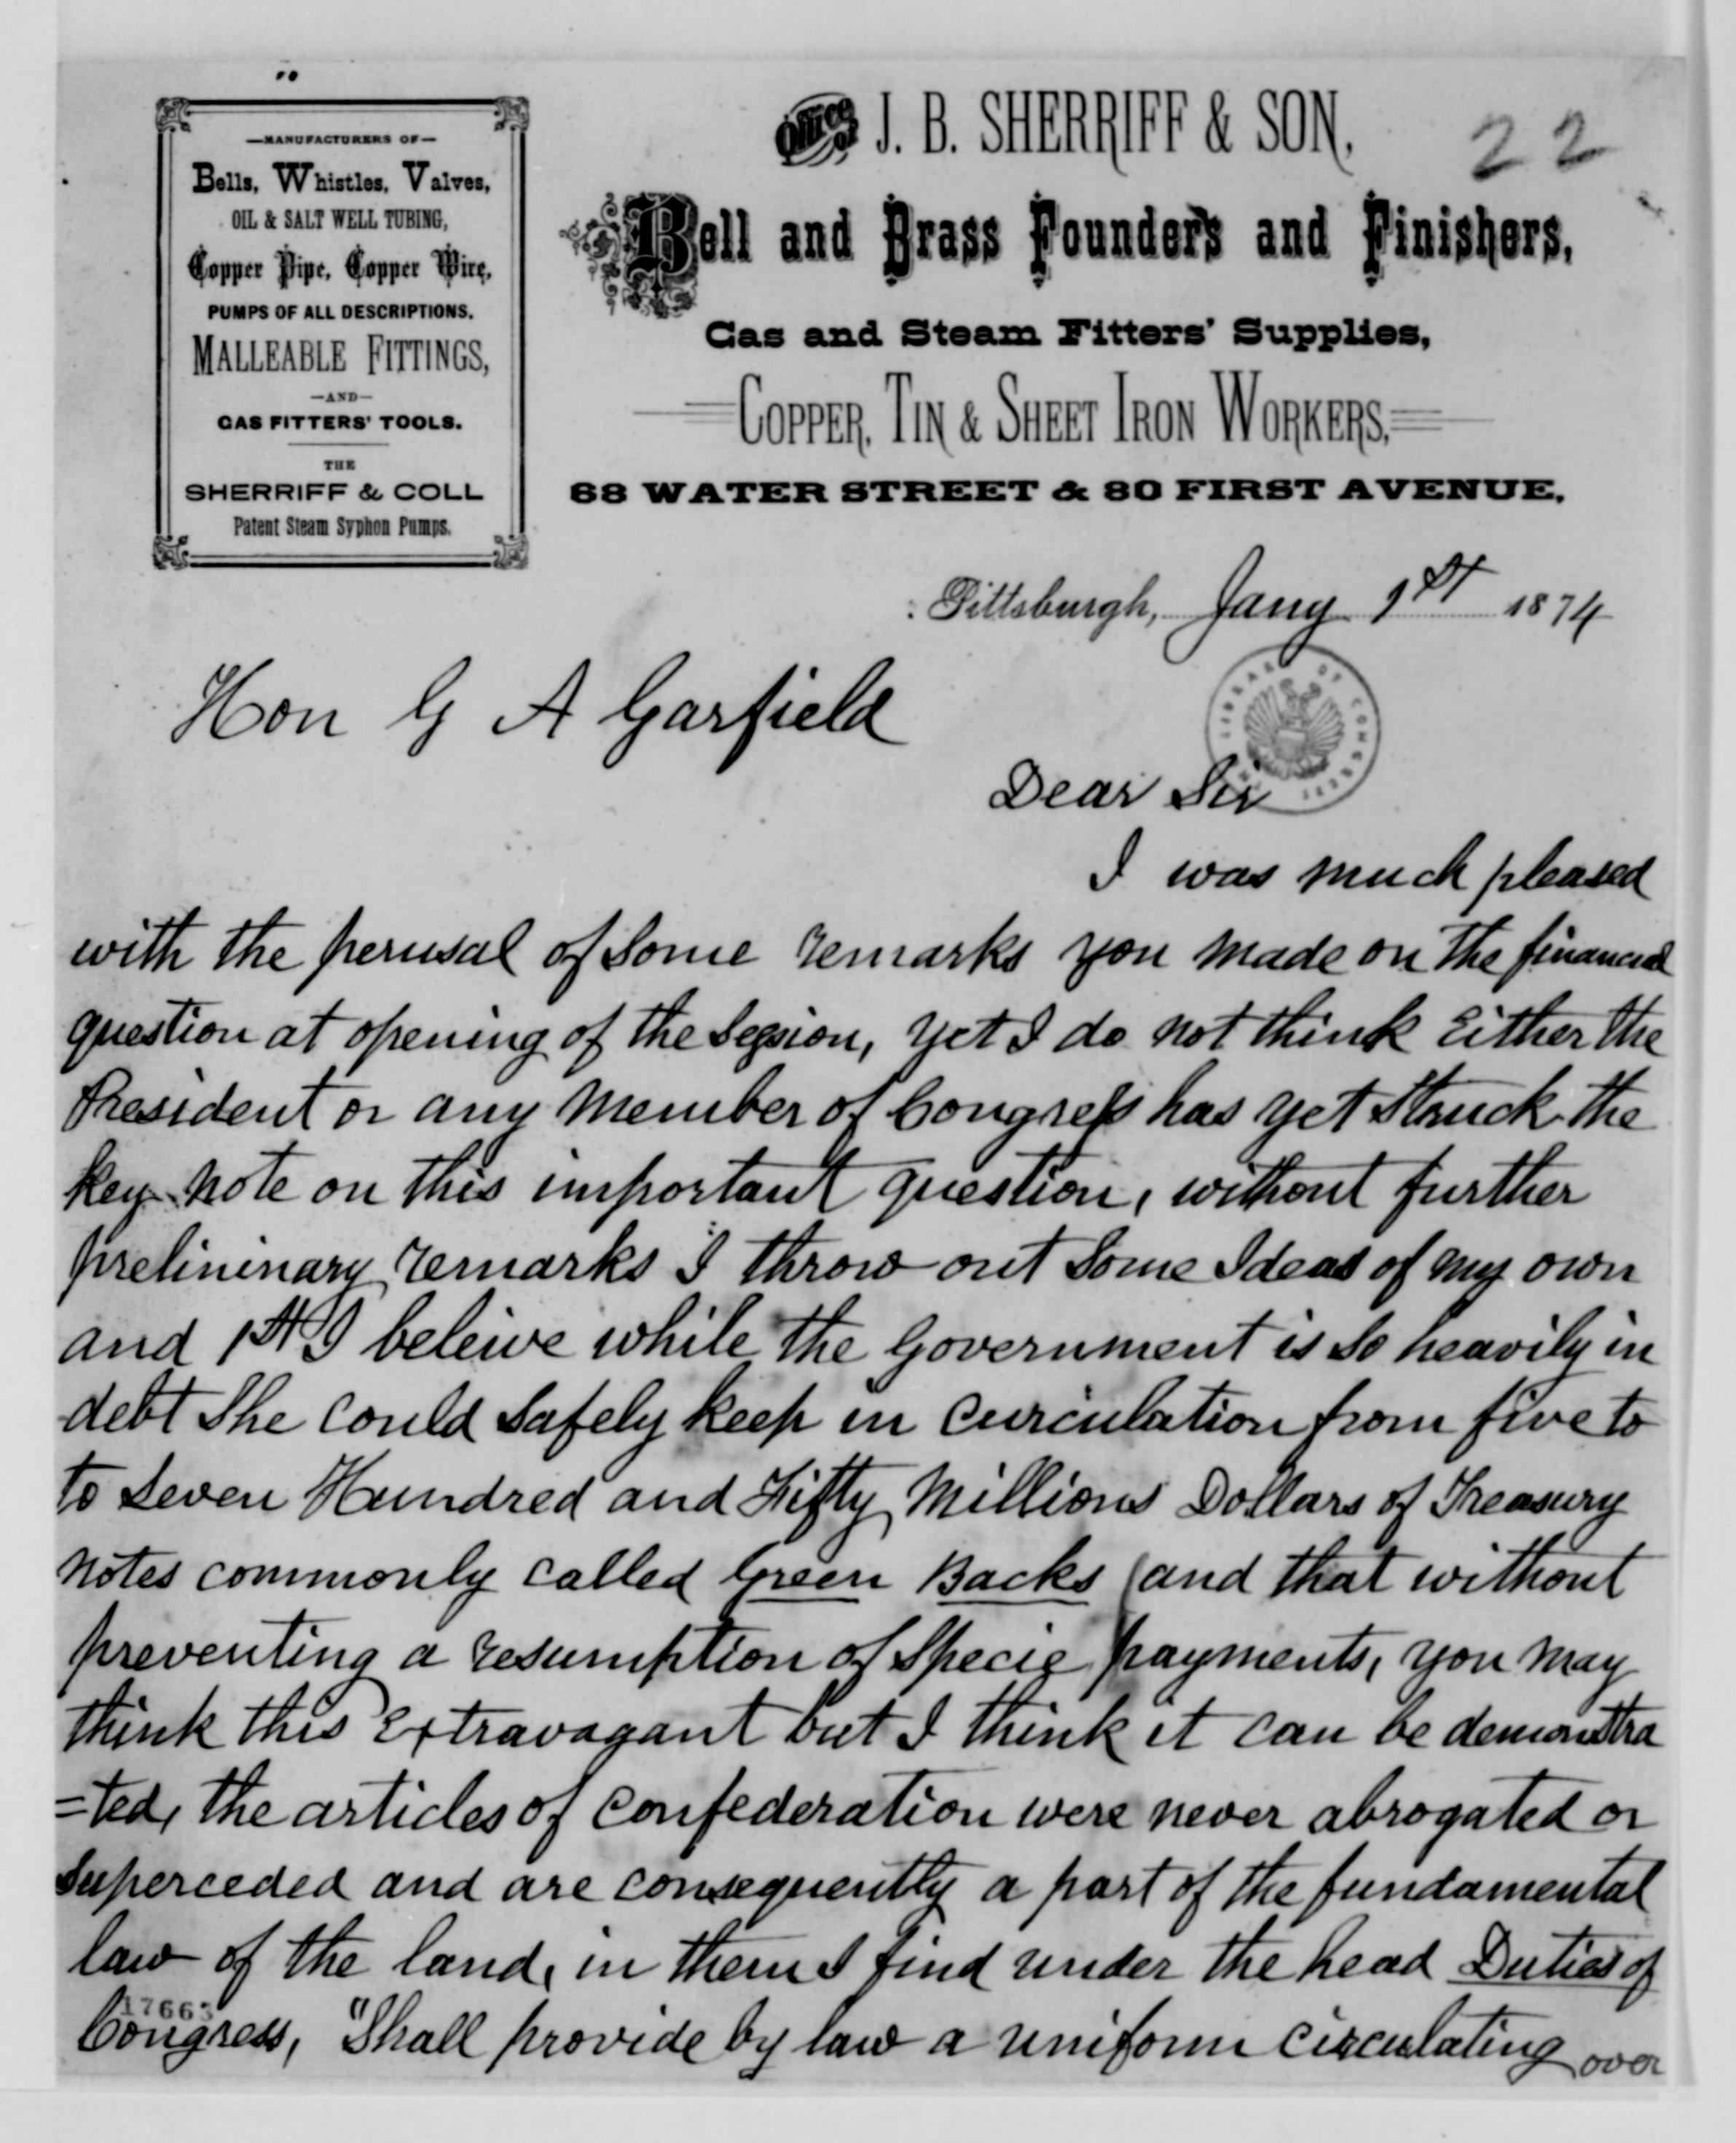 —MANUFACTURERS OF—
Bells, Whistles, Valves,
OIL & SALT WELL TUBING,
Copper Pipe, Copper Wire,
PUMPS OF ALL DESCRIPTIONS.
MALLEABLE FITTINGS,
—AND—
GAS FITTERS' TOOLS.
THE
SHERRIFF & COLL
Patent Steam Syphon Pumps.
OFFICE OF J. B. SHERRIFF & SON,
22
Bell and Brass Founders and Finishers,
Gas and Steam Fitters' Supplies,
COPPER, TIN & SHEET IRON WORKERS,
68 WATER STREET & 80 FIRST AVENUE,
Pittsburgh, Jany 1st 1874
Hon G A Garfield
LIBRARY OF CONGRESS
Dear Sir
I was much pleased
with the perusal of some remarks you made on the financial
question at opening of the Session, yet I do not think Either the
President or any Member of Congress has yet Struck the
key note on this important question, without further
prelininary remarks I throw out some Ideas of my own
and 1st I beleive while the Government is so heavily in
debt She could safely keep in circulation from five to
to Seven Hundred and Fifty Millions Dollars of Treasury
Notes commonly called Green Backs (and that without
preventing a resumption of Specie payments, you may
think this Extravagant but I think it can be demonstra
=ted, the articles of confederation were never abrogated or
Superceded and are consequently a part of the fundamental
law of the land, in them I find under the head Duties of
17663
Congress, "Shall provide by law a uniform circulating over